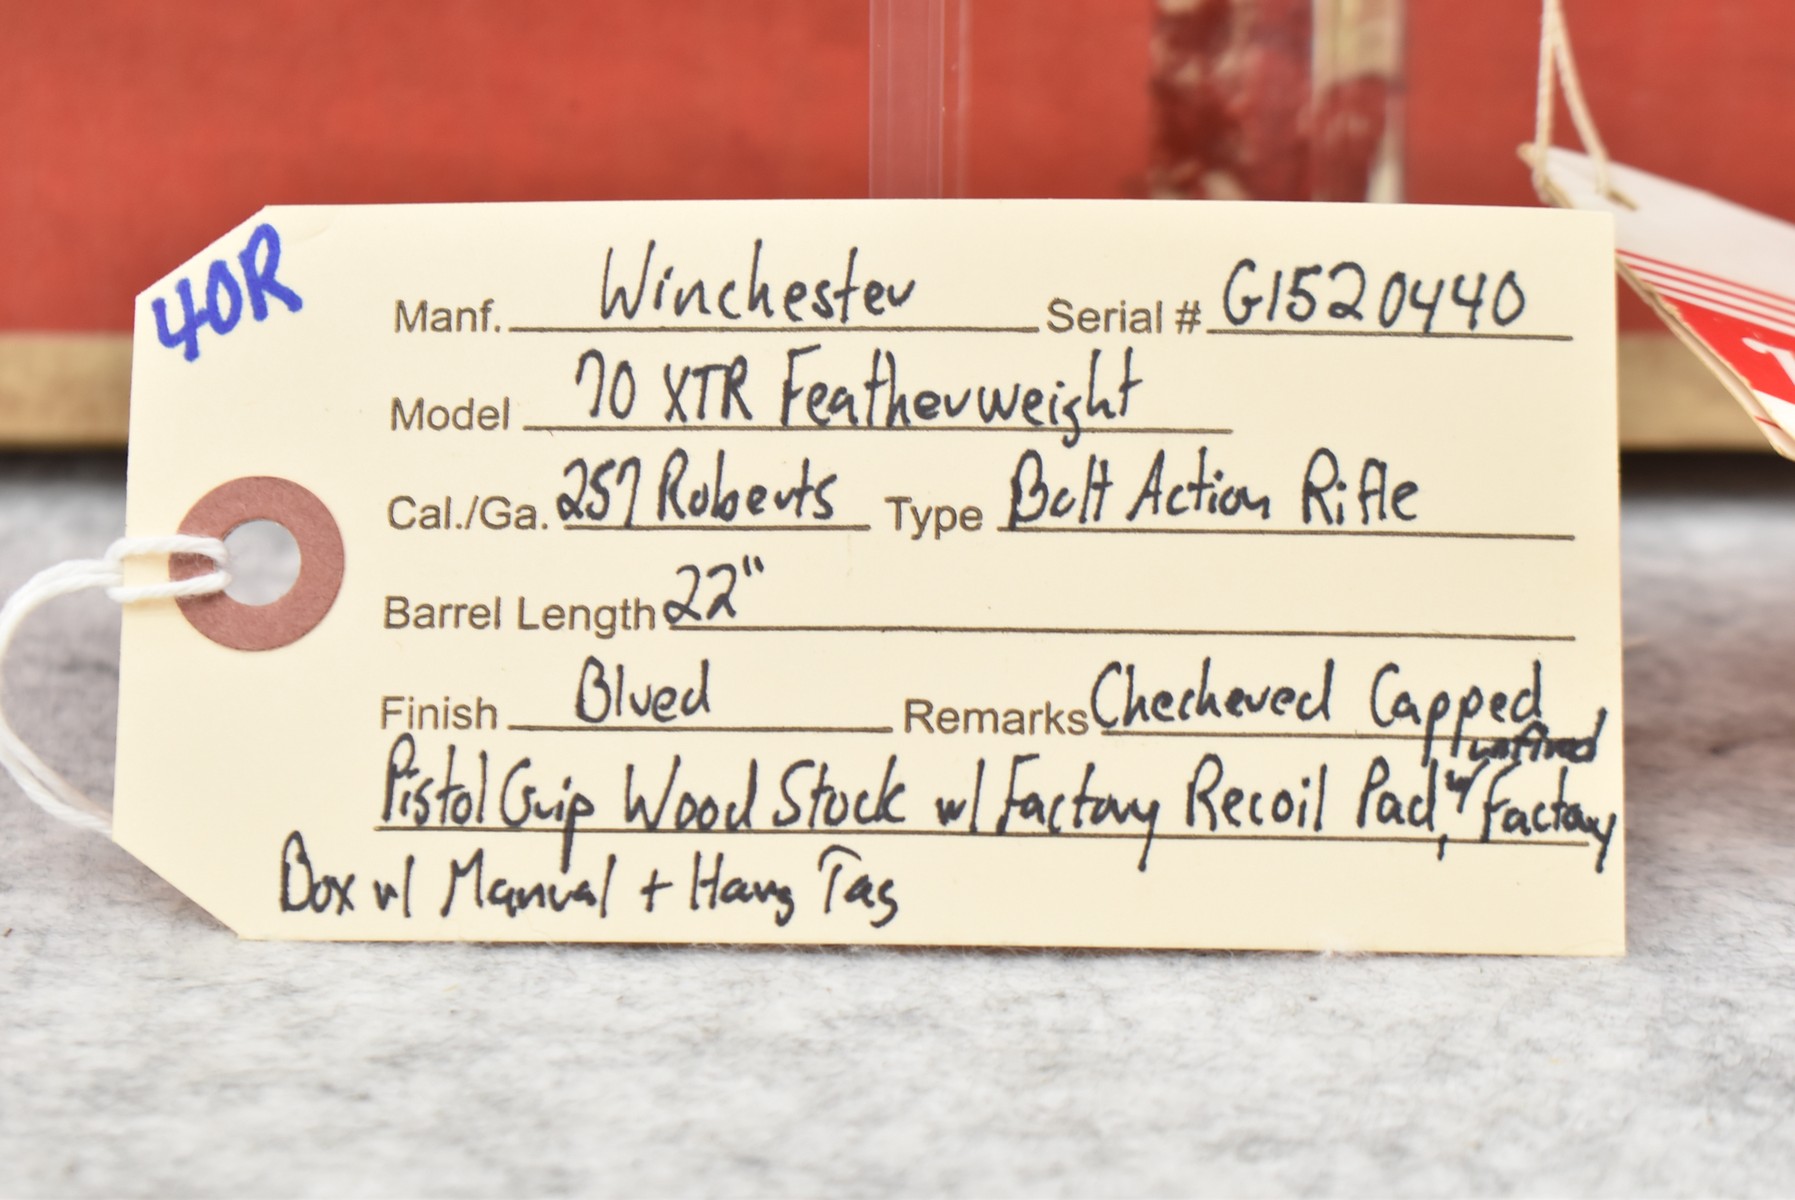 40R
Manf. Winchester Serial # G1520440
Model 70 XTR Featherweight
Cal./Ga. 257 Roberts Type Bolt Action Rifle
Barrel Length 22"
Finish Blued Remarks Checkered Capped
unfired
Pistol Grip Wood Stock w/ Factory Recoil Pad, w/ Factory
Box w/ Manual + Hang Tag